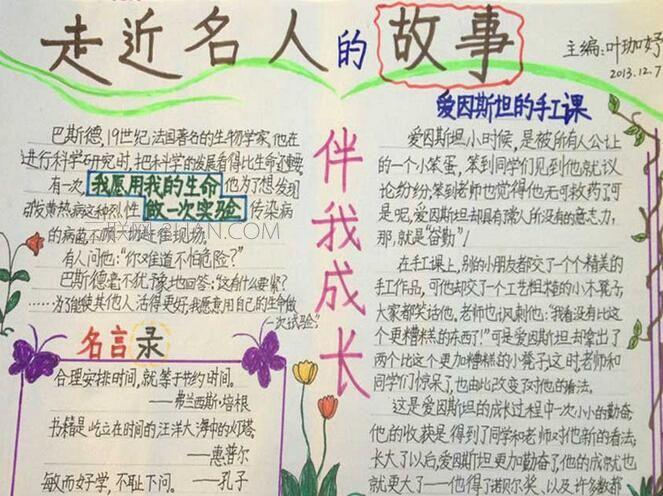 走近名人的故事
主编:叶珈妤
2013.12.7
巴斯德,19世纪法国著名的生物学家,他在
进行科学研究时,把科学的发展看得比生命还重要。
有一次,我愿用我的生命他为了想发现
黄热病这种烈性做一次实验传染病
的病菌,不顾一切赶往现场。
有人问他:"你难道不怕危险?"
巴斯德毫不犹豫地回答:"这有什么要紧?
……为了能使其他人活得更好,我愿意用自己的生命做
一次试验"
名言录
合理安排时间,就等于节约时间。
——弗兰西斯·培根
书籍是屹立在时间的汪洋大海中的灯塔。
——惠普尔
敏而好学,不耻下问。
——孔子
伴我成长
爱因斯坦的手工课
爱因斯坦小时候,是被所有人公认
的一个小笨蛋,笨到同学们见到他就议
论纷纷,笨到老师也觉得他无可救药了,可
是呢,爱因斯坦却具有了常人所没有的意志力,
那,就是"奋勤"!
在手工课上,别的小朋友都交了一个个精美的
手工作品,可他却交了一个工艺粗糙的小木凳子,
大家都笑话他。老师也讽刺他:"我看没有比这
个更糟糕的东西了!"可是爱因斯坦却拿出了
两个比这个更加糟糕的小凳子,这时,老师和
同学们惊呆了,也由此改变了对他的看法。
这是爱因斯坦的成长过程中一次小小的勤奋
他的收获是得到了同学和老师对他新的看法;
长大了以后,爱因斯坦更加勤奋了,他的成就也
就更大了——他得了诺贝尔奖,以及许多数都